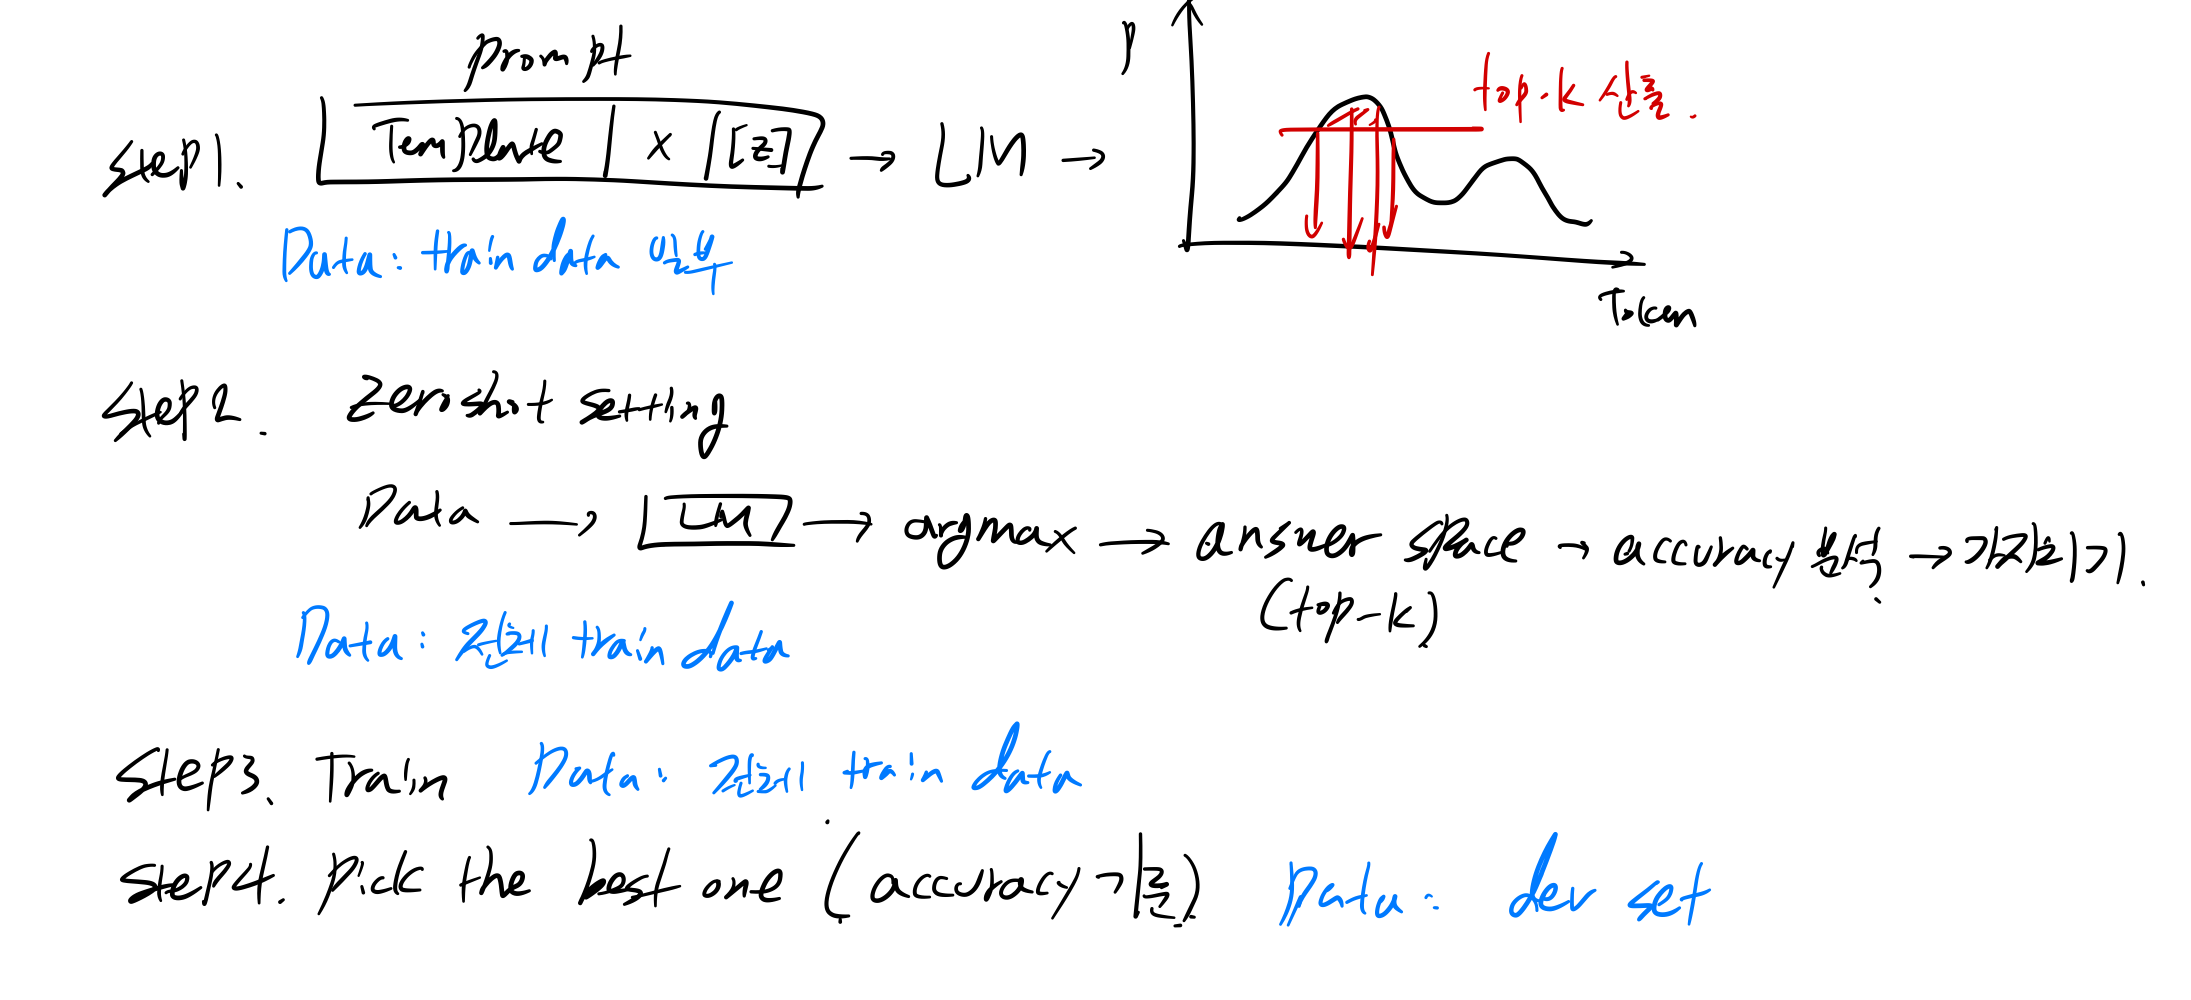 prompt
P
top-k 산출.
Step1. Template x [z] → LM →
Data: train data 일부
Token
Step2. Zero shot setting
Data → LM → argmax → answer space → accuracy 분석 → 가지치기.
(top-k)
Data: 전체 train data
Step3. Train Data: 전체 train data
Step4. Pick the best one (accuracy 기준) Data: dev set